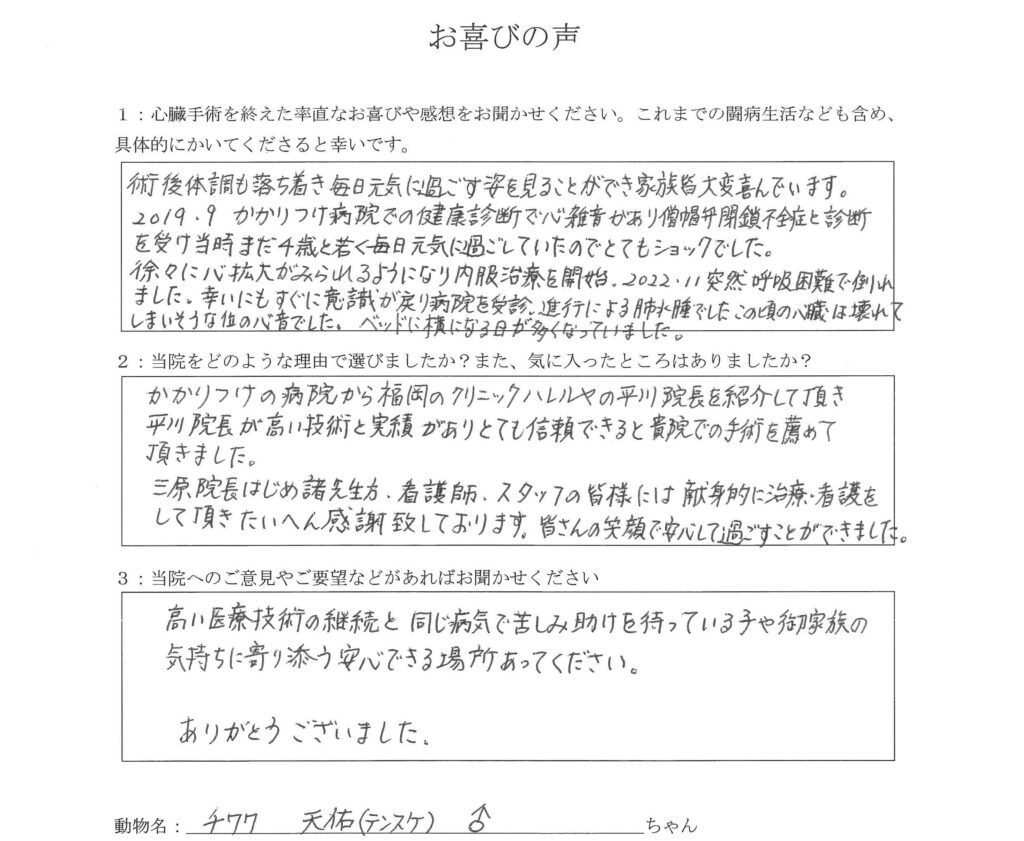 お喜びの声
１：心臓手術を終えた率直なお喜びや感想をお聞かせください。これまでの闘病生活なども含め、
具体的にかいてくださると幸いです。
術後体調も落ち着き毎日元気に過ごす姿を見ることができ家族皆大変喜んでいます。
2019.9 かかりつけ病院での健康診断で心雑音があり僧帽弁閉鎖不全症と診断
を受け当時まだ4歳と若く毎日元気に過ごしていたのでとてもショックでした。
徐々に心拡大がみられるようになり内服治療を開始、2022.11突然呼吸困難で倒れ
ました。幸いにもすぐに意識が戻り病院を受診、進行による肺水腫でしたこの頃の心臓は壊れて
しまいそうな位の心音でした。ベッドに横になる日が多くなっていました。
２：当院をどのような理由で選びましたか？また、気に入ったところはありましたか？
かかりつけの病院から福岡のクリニックハレルヤの平川院長を紹介して頂き
平川院長が高い技術と実績がありとても信頼できると貴院での手術を薦めて
頂きました。
三原院長はじめ諸先生方、看護師、スタッフの皆様には献身的に治療・看護を
して頂きたいへん感謝致しております。皆さんの笑顔で安心して過ごすことができました。
３：当院へのご意見やご要望などがあればお聞かせください
高い医療技術の継続と同じ病気で苦しみ助けを待っている子や御家族の
気持ちに寄り添う安心できる場所あってください。
ありがとうございました。
動物名：チワワ 天佑(テンスケ) ♂ ちゃん